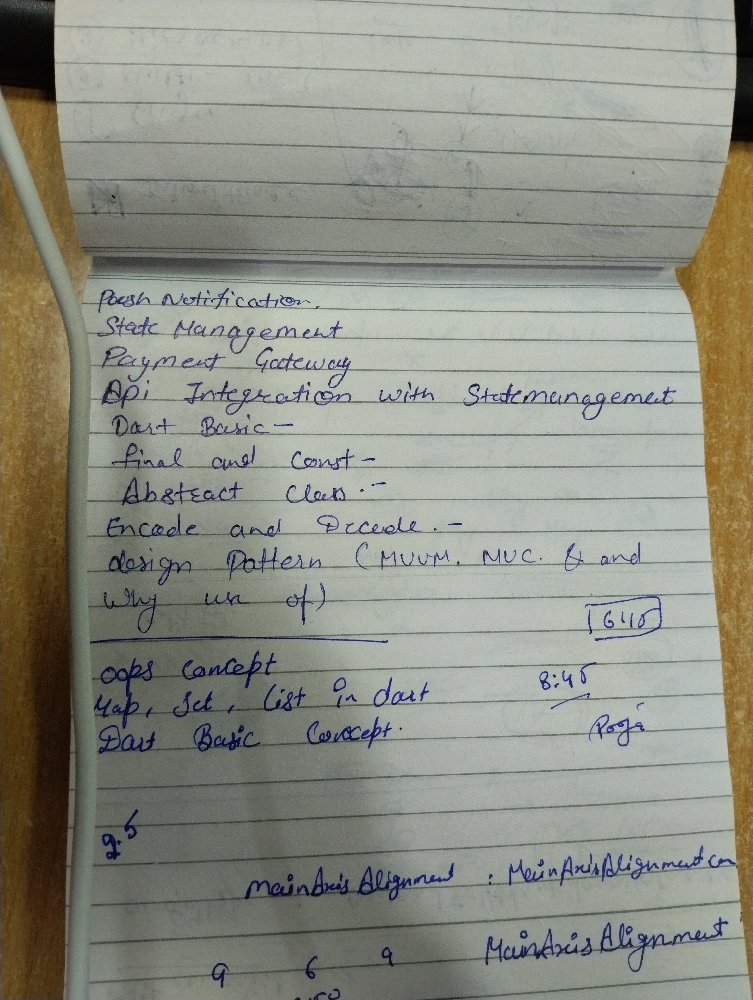 Push Notification.
State Management
Payment Gateway
Api Integration with Statemanagement
Dart Basic -
final and Const -
Abstract Class. -
Encode and Decode. -
design Pattern (MVVM. MVC. & and
why use of)
oops concept
8:45
Map, Set, List in dart
Pooja
Dart Basic Concept.
9.5
MainAxisAlignment : MainAxisAlignment.cen
MainAxisAlignment
9 6 9